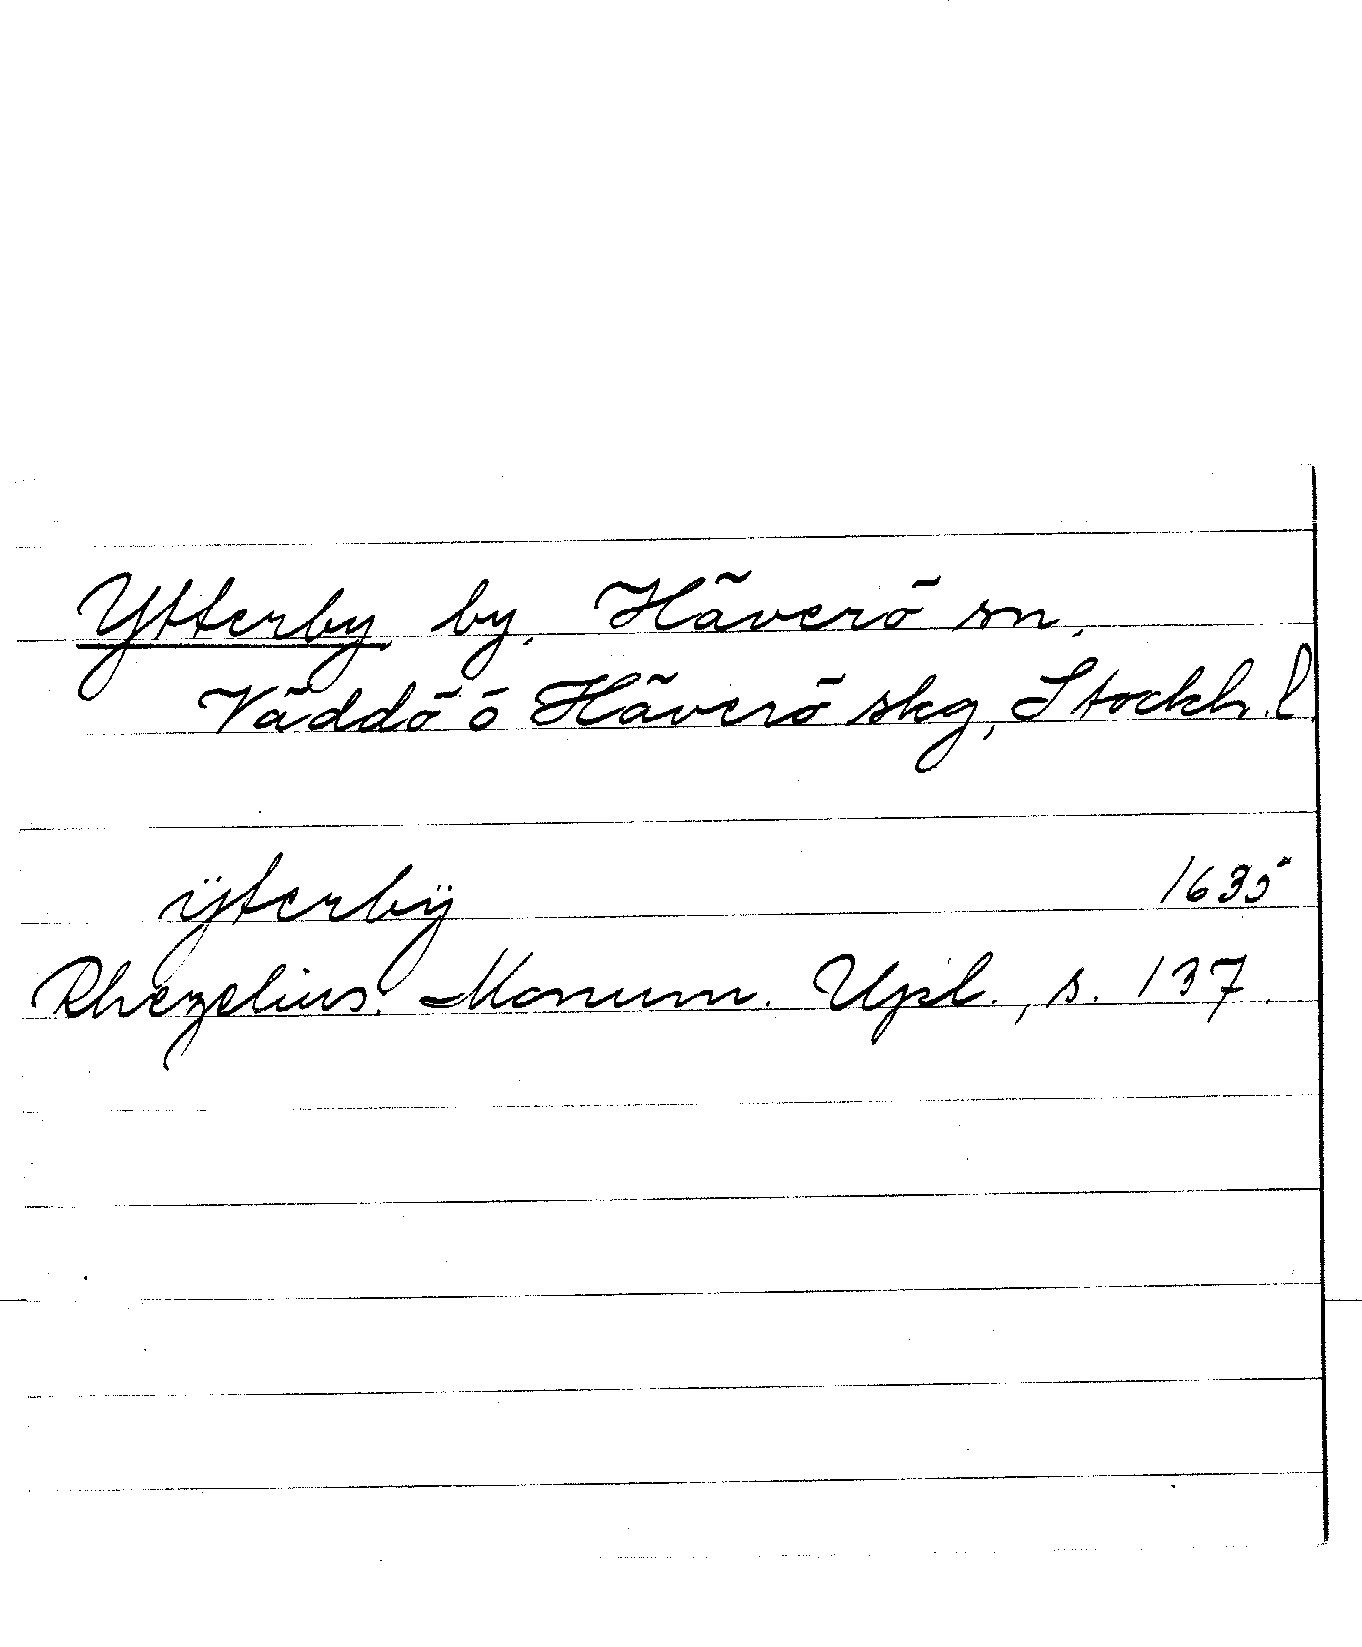 Ytterby by, Häverö sn,
Väddö o Häverö skg, Stockh. l.
ÿterbÿ 1635
Rhezelius. Monum. Upl., s. 137.